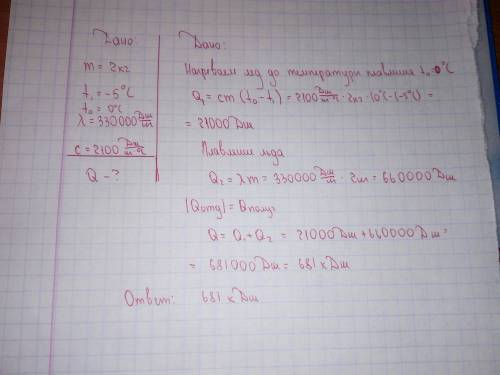 Дано:
m = 2кг
t₁ = -5°C
t₀ = 0°C
λ = 330000 Дж/кг
c = 2100 Дж/кг°C
Q - ?
Дано:
Нагреваем лёд до температуры плавления t₀ = 0°C
Q₁ = cm (t₀ - t₁) = 2100 Дж/кг°C · 2кг · (0°C - (-5°C)) =
= 21000 Дж
Плавление льда
Q₂ = λm = 330000 Дж/кг · 2кг = 660000 Дж
|Qотд| = Qполуч
Q = Q₁ + Q₂ = 21000 Дж + 660000 Дж =
= 681000 Дж = 681 кДж
Ответ: 681 кДж